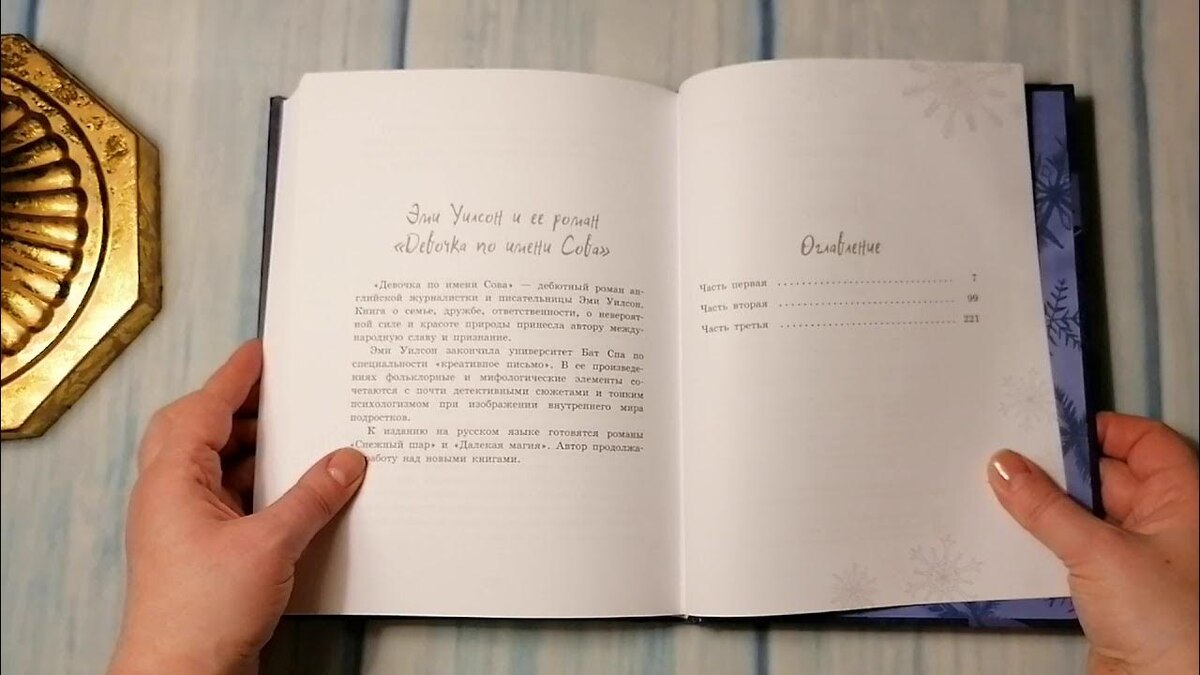 Эми Уилсон и ее роман
«Девочка по имени Сова»
«Девочка по имени Сова» — дебютный роман ан-
глийской журналистки и писательницы Эми Уилсон.
Книга о семье, дружбе, ответственности, о невероят-
ной силе и красоте природы принесла автору между-
народную славу и признание.
Эми Уилсон закончила университет Бат Спа по
специальности «креативное письмо». В ее произведе-
ниях фольклорные и мифологические элементы со-
четаются с почти детективными сюжетами и тонким
психологизмом при изображении внутреннего мира
подростков.
К изданию на русском языке готовятся романы
«Снежный шар» и «Далекая магия». Автор продолжа-
работу над новыми книгами.
Оглавление
Часть первая .............................. 7
Часть вторая .............................. 99
Часть третья .............................. 221